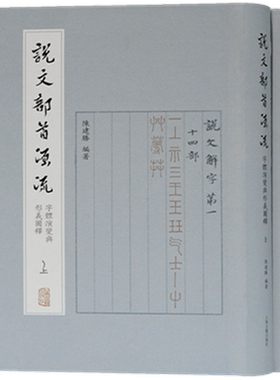 説文部首源流
字體演變與
形義圖釋
上
陳建勝 編著
説文解字 第一
十四部
一丄示三王玉玨气士丨屮
艸蓐茻
説文部首源流
字體演變與形義圖釋
上
陳建勝 編著
上海古籍出版社